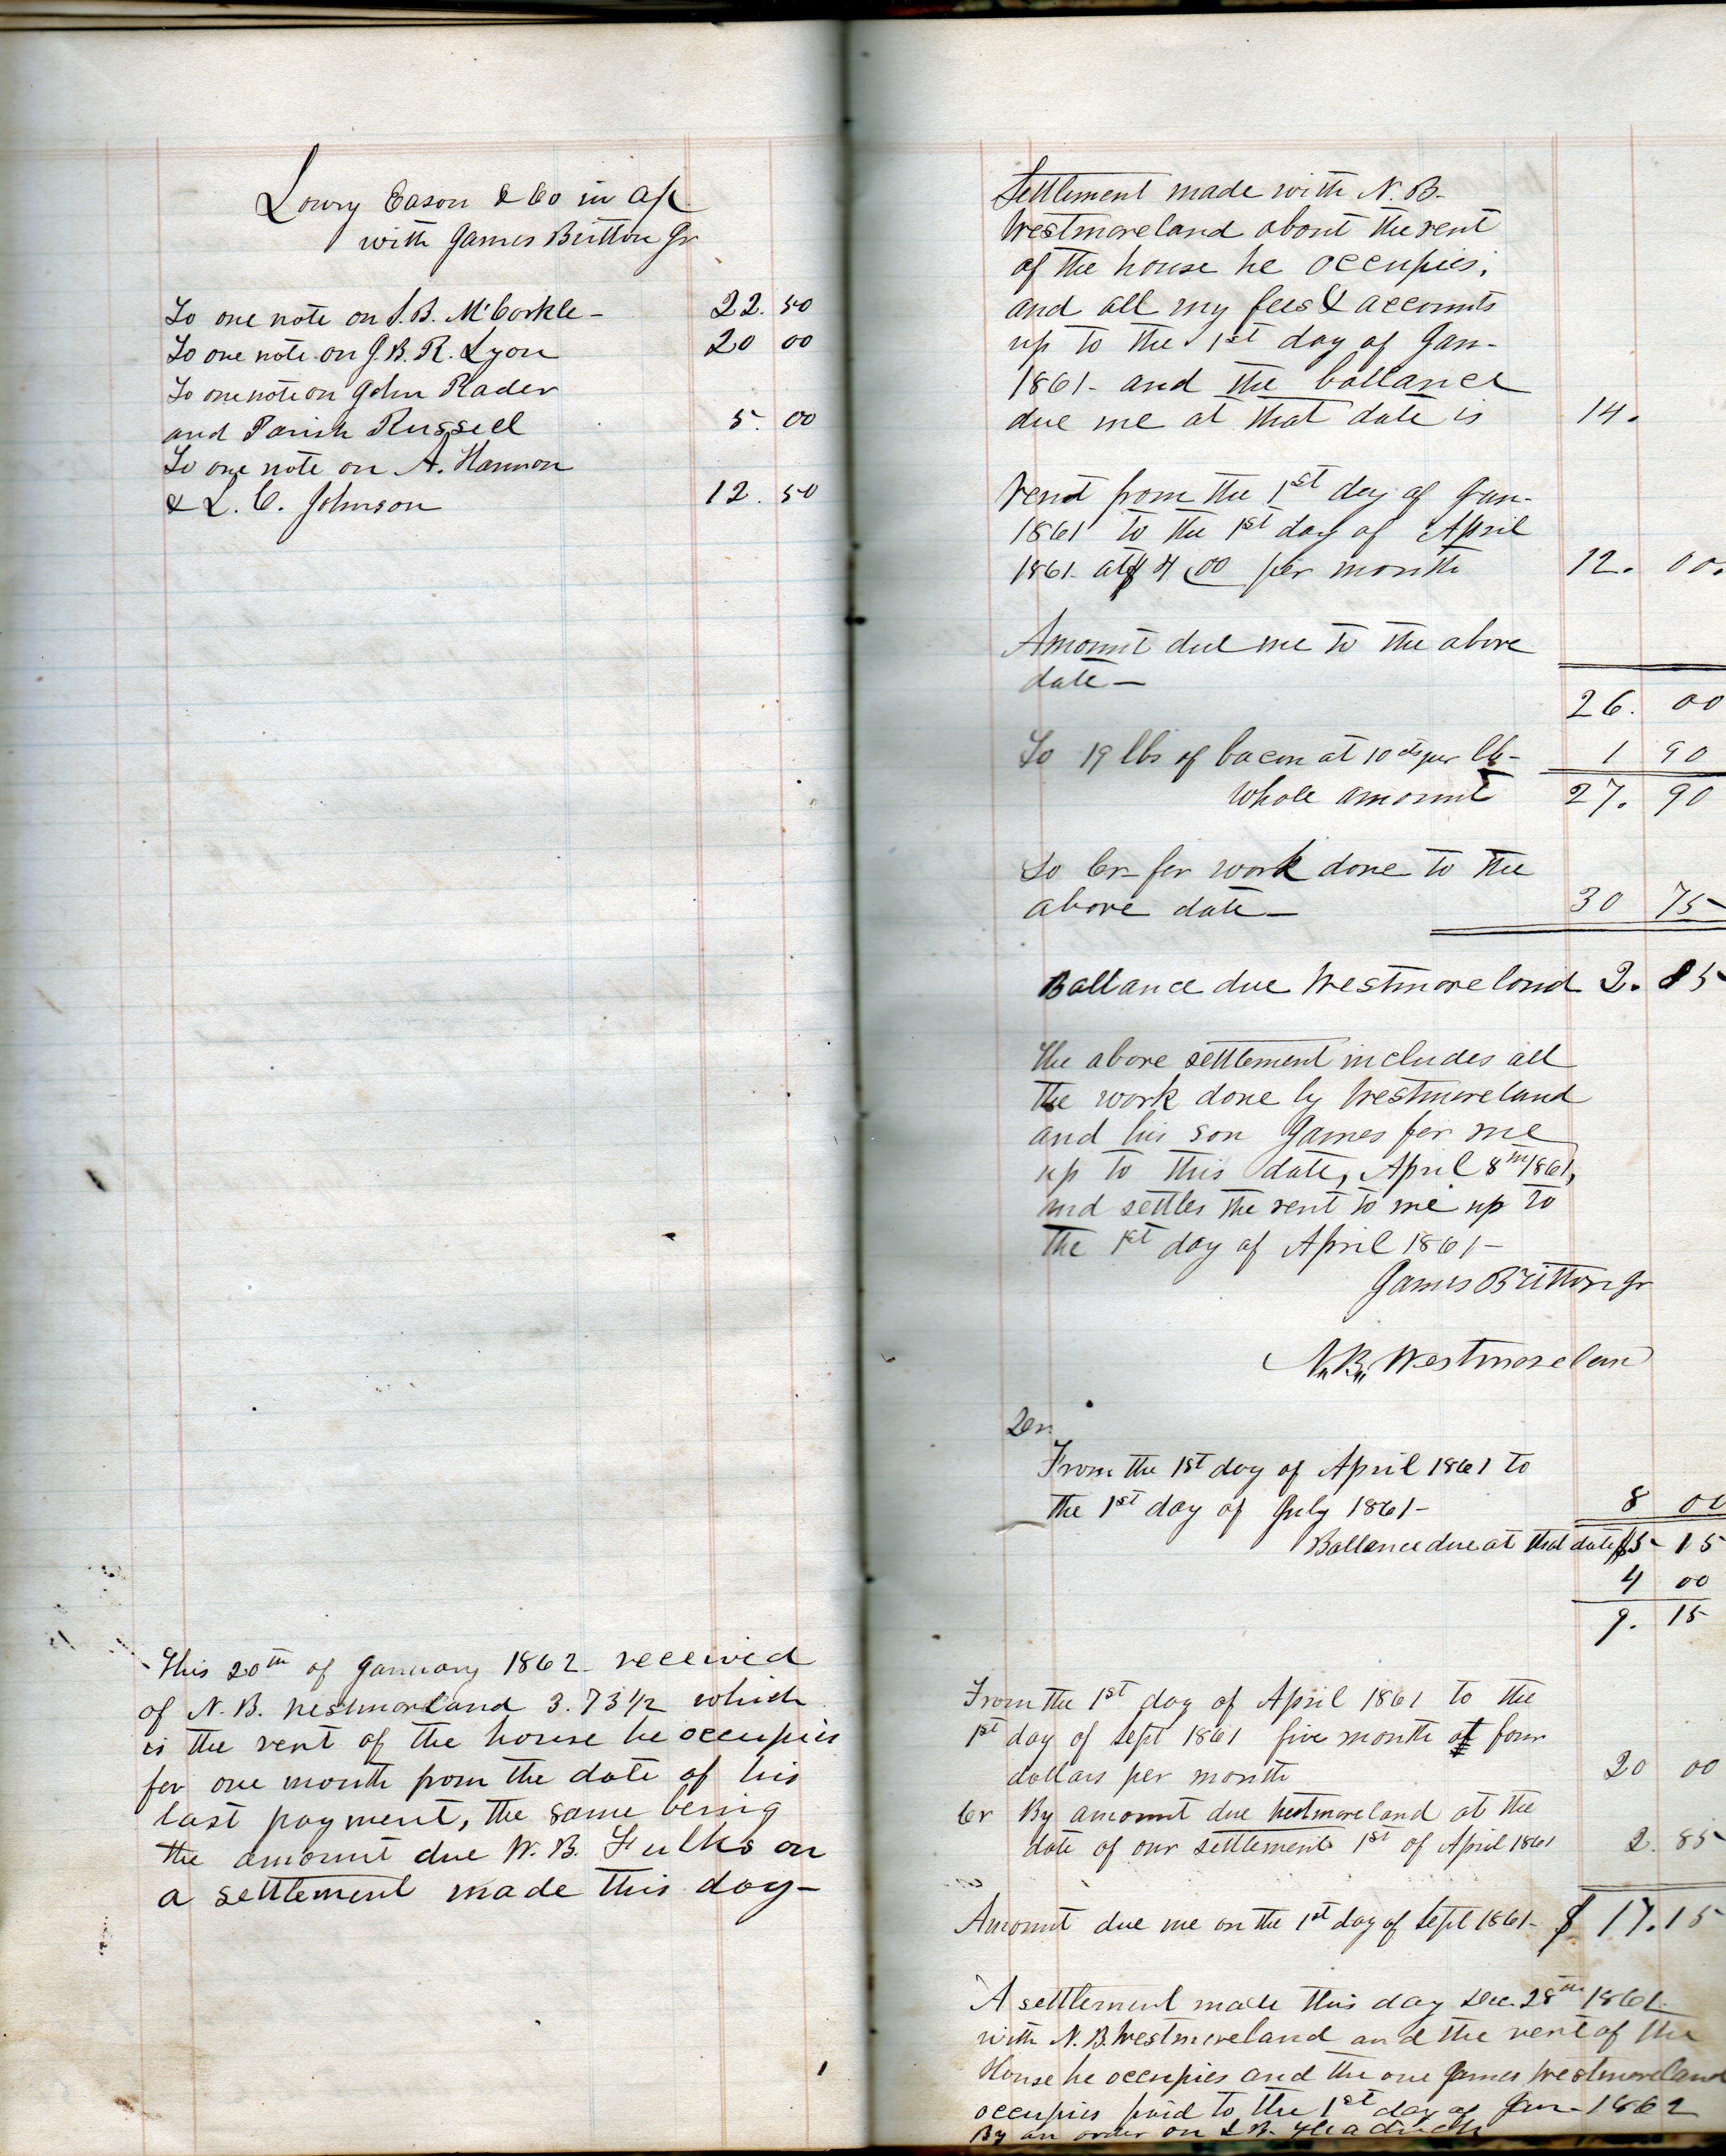 Lowry Eason & Co in a/c
with James Britton Jr
To one note on S. B. McCorkle - 22. 50
To one note on J. B. R. Lyon 20 00
To one note on John Rader
and Parish Russell 5. 00
To one note on A. Harmon
& L. C. Johnson 12. 50
This 20th of January 1862 - received
of N. B. Westmorland 3.73 1/2 which
is the rent of the house he occupies
for one month from the date of his
last payment, the same being
the amount due W. B. Fulks on
a settlement made this day -
Settlement made with N. B.
Westmoreland about the rent
of the house he occupies,
and all my fees & accounts
up to the 1st day of Jan-
1861 - and the ballance
due me at that date is 14.
Rent from the 1st day of Jan-
1861 to the 1st day of April
1861 - at $4 00 per month 12. 00.
Amount due me to the above
date -
26. 00
To 19 lbs of bacon at 10 cts per lb - 1 90
Whole amount 27. 90
To Cr - for work done to the
above date - 30 75
Ballance due Westmoreland 2. 85
The above settlement includes all
the work done by Westmoreland
and his son James for me
up to this date, April 8th 1861,
and settles the rent to me up to
the 1st day of April 1861 -
James Britton Jr
N. B. Westmorelan
From the 1st day of April 1861 to
the 1st day of July 1861 - 8 00
Ballance due at that date $5 - 15
4 00
9. 15
From the 1st day of April 1861 to the
1st day of Sept 1861 five month at four
dollars per month 20 00
Cr By amount due Westmoreland at the
date of our settlement 1st of April 1861 2. 85
Amount due me on the 1st day of Sept 1861 - $ 17.15
A settlement made this day Dec. 28th 1861
with N. B. Westmoreland and the rent of the
House he occupies and the one James Westmoreland
occupies paid to the 1st day of Jan - 1862
By an order on